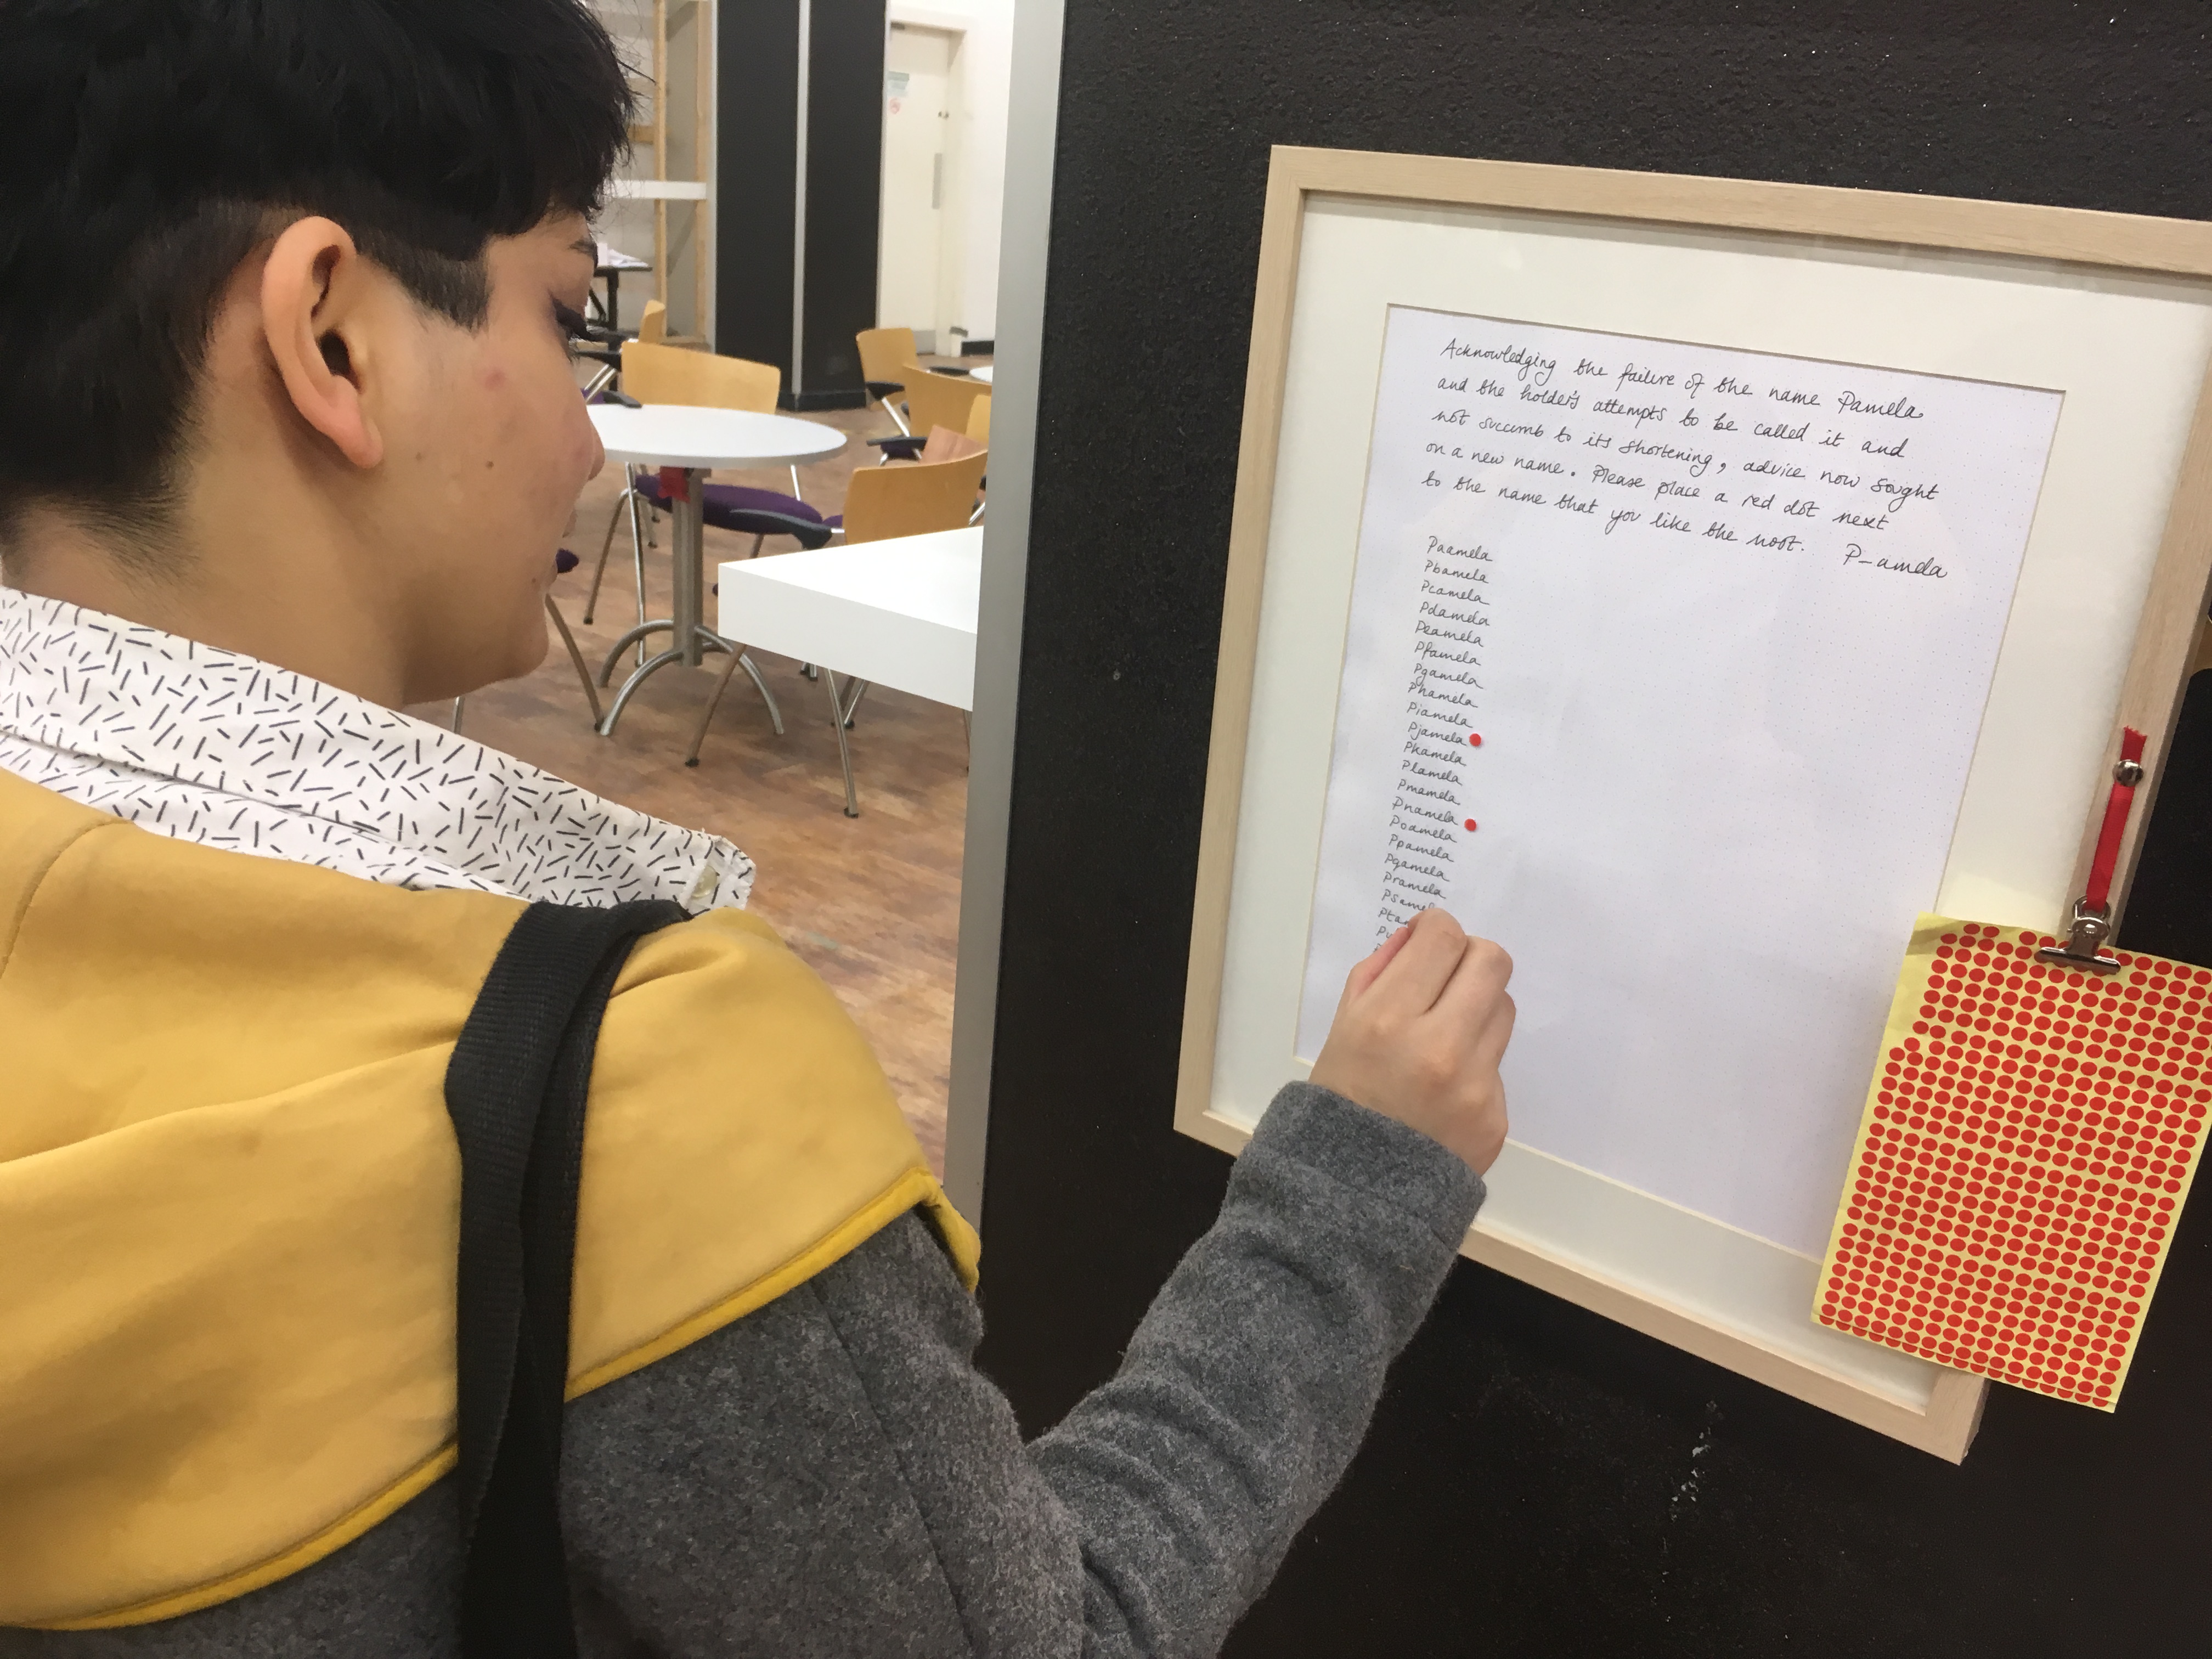 Acknowledging the failure of the name Pamela
and the holder's attempts to be called it and
not succumb to its shortening, advice now sought
on a new name. Please place a red dot next
to the name that you like the most. P-amela
Paamela
Pbamela
Pcamela
Pdamela
Peamela
Pfamela
Pgamela
Phamela
Piamela
Pjamela
Pkamela
Plamela
Pmamela
Pnamela
Poamela
Ppamela
Pqamela
Pramela